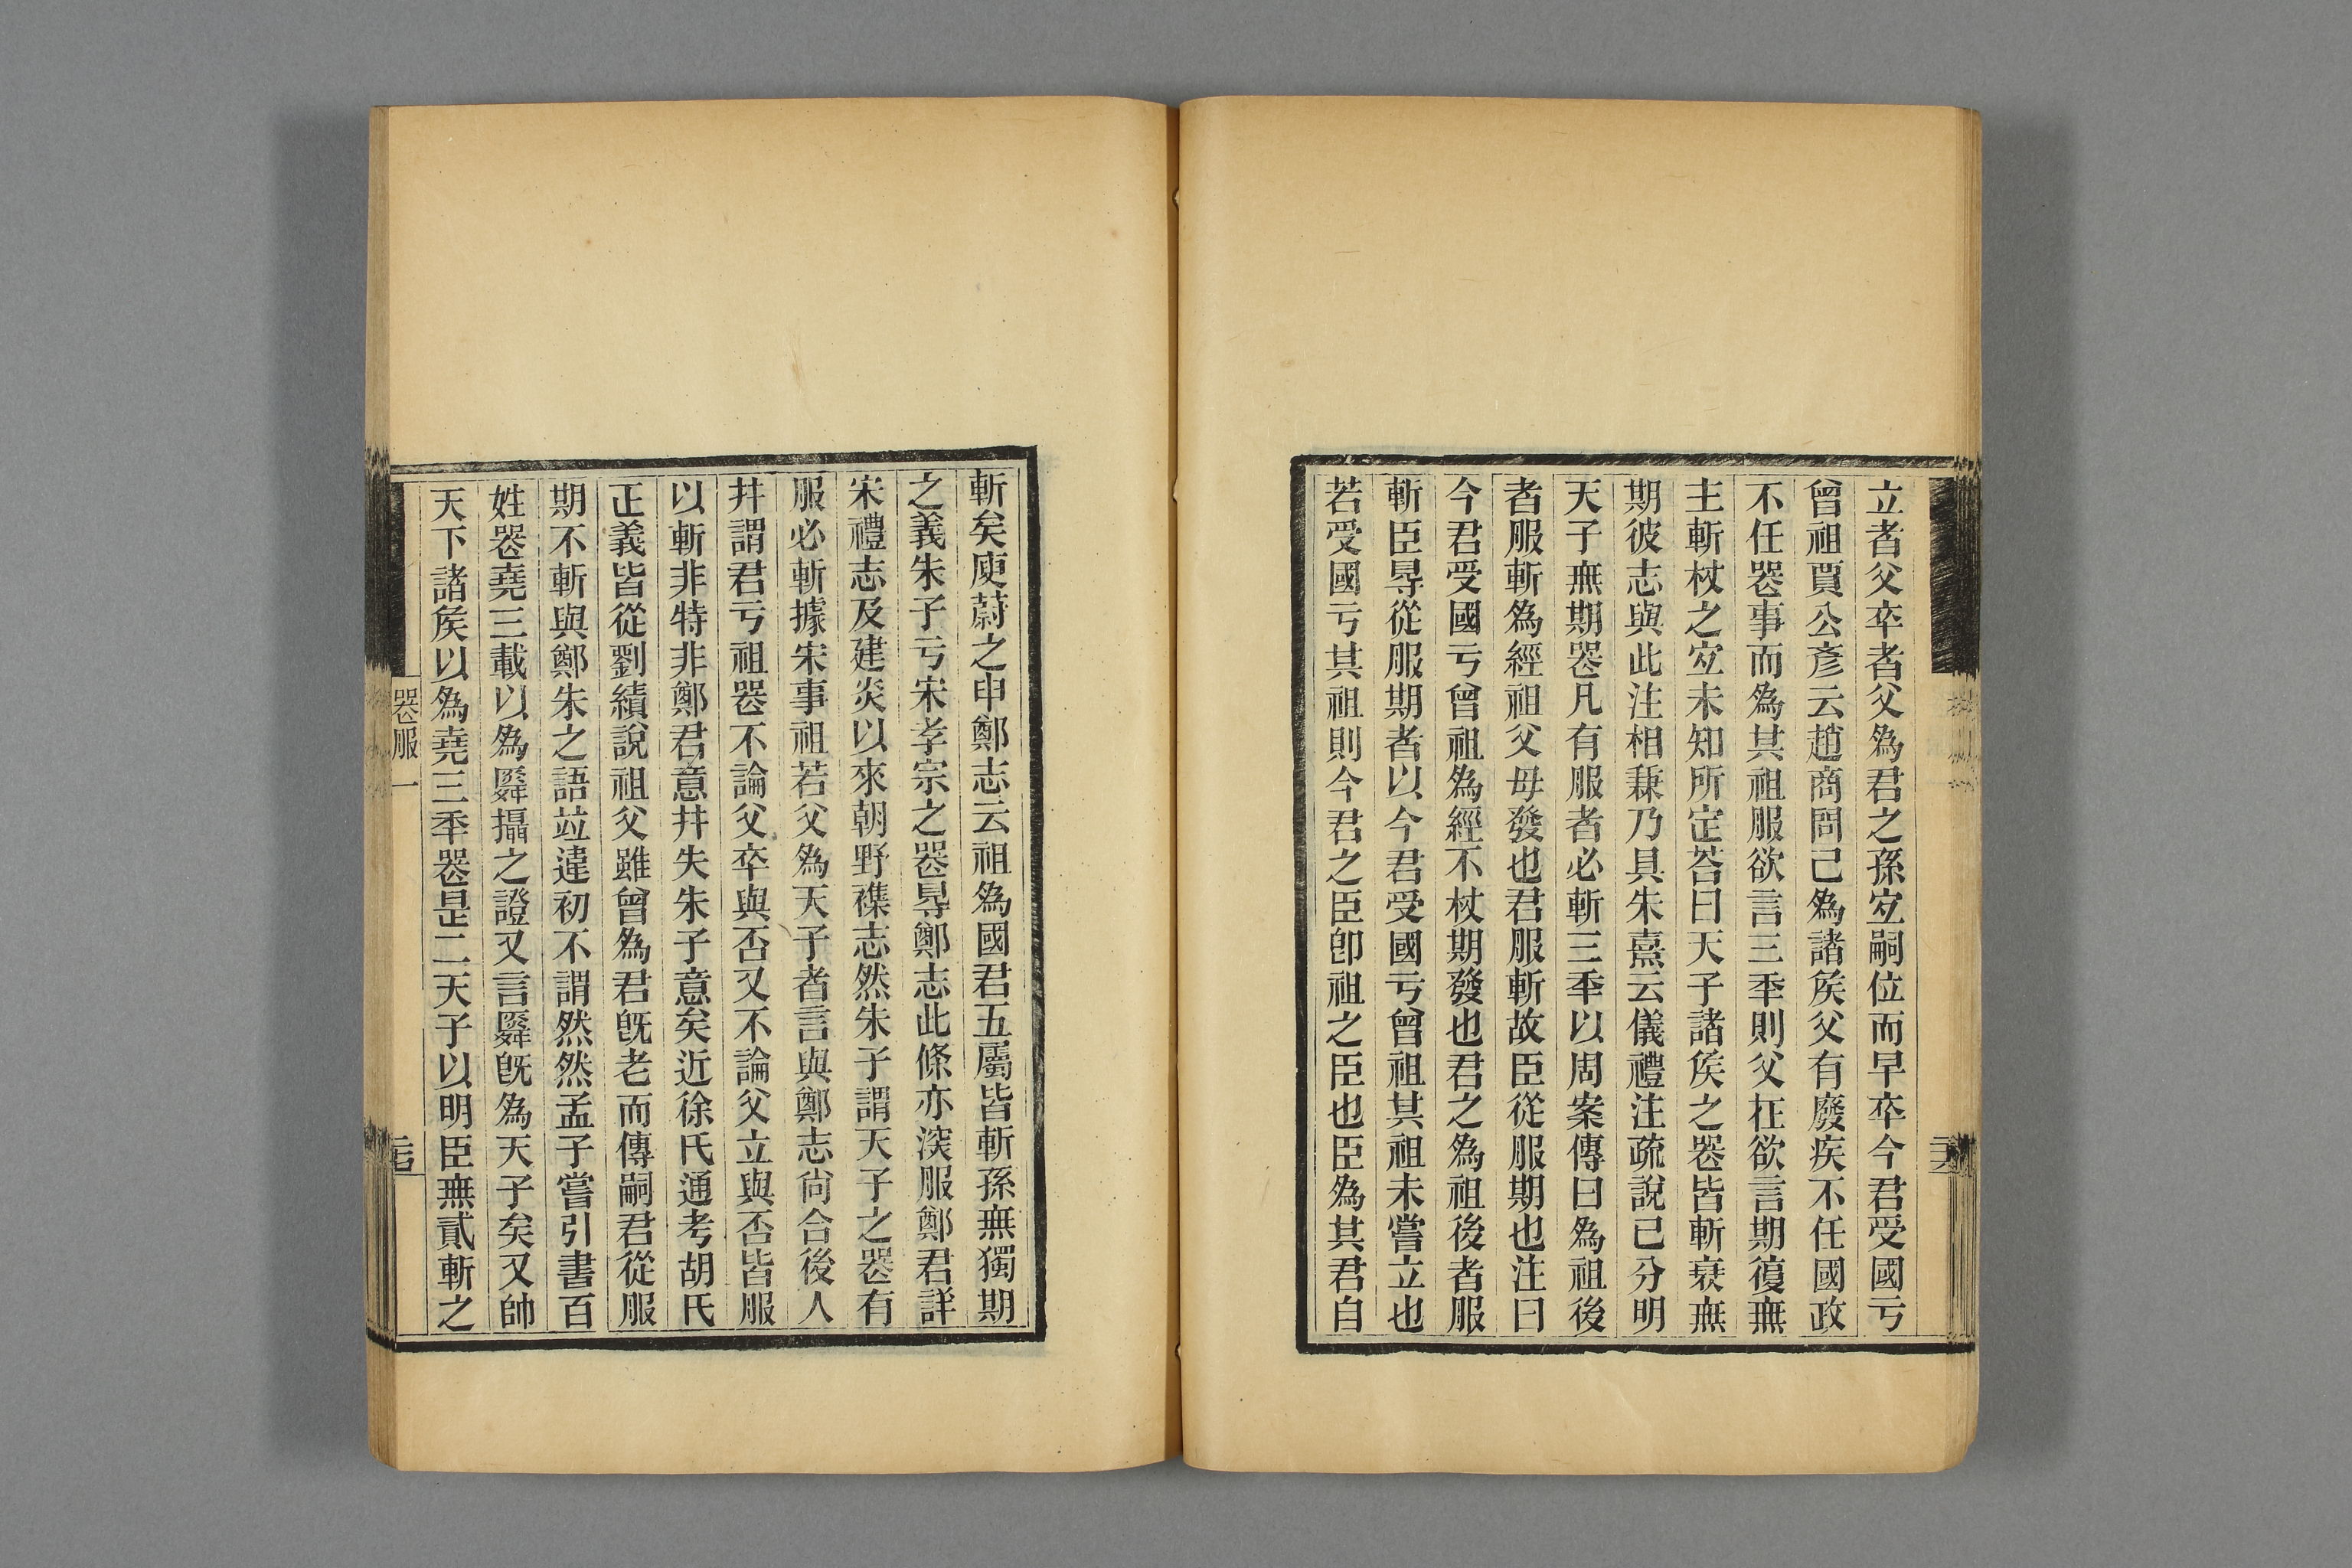 立者父卒者父爲君之孫宐嗣位而早卒今君受國亏
曾祖賈公彥云趙商問己爲諸矦父有廢疾不任國政
不任喪事而爲其祖服欲言三秊則父在欲言期復無
主斬杖之宐未知所定荅曰天子諸矦之喪皆斬衰無
期彼志與此注相兼乃具朱熹云儀禮注疏說已分明
天子無期喪凡有服者必斬三秊以周案傳曰爲祖後
者服斬爲經祖父母發也君服斬故臣從服期也注曰
今君受國亏曾祖爲經不杖期發也君之爲祖後者服
斬臣㝵從服期者以今君受國亏曾祖其祖未嘗立也
若受國亏其祖則今君之臣卽祖之臣也臣爲其君自
斬矣庾蔚之申鄭志云祖爲國君五屬皆斬孫無獨期
之義朱子亏宋孝宗之喪㝵鄭志此條亦深服鄭君詳
宋禮志及建炎以來朝野襍志然朱子謂天子之喪有
服必斬據宋事祖若父爲天子者言與鄭志尙合後人
幷謂君亏祖喪不論父卒與否又不論父立與否皆服
以斬非特非鄭君意幷失朱子意矣近徐氏通考胡氏
正義皆從劉績說祖父雖曾爲君旣老而傳嗣君從服
期不斬與鄭朱之語竝違初不謂然然孟子嘗引書百
姓喪堯三載以爲舜攝之證又言舜旣爲天子矣又帥
天下諸矦以爲堯三秊喪是二天子以明臣無貳斬之
喪服一